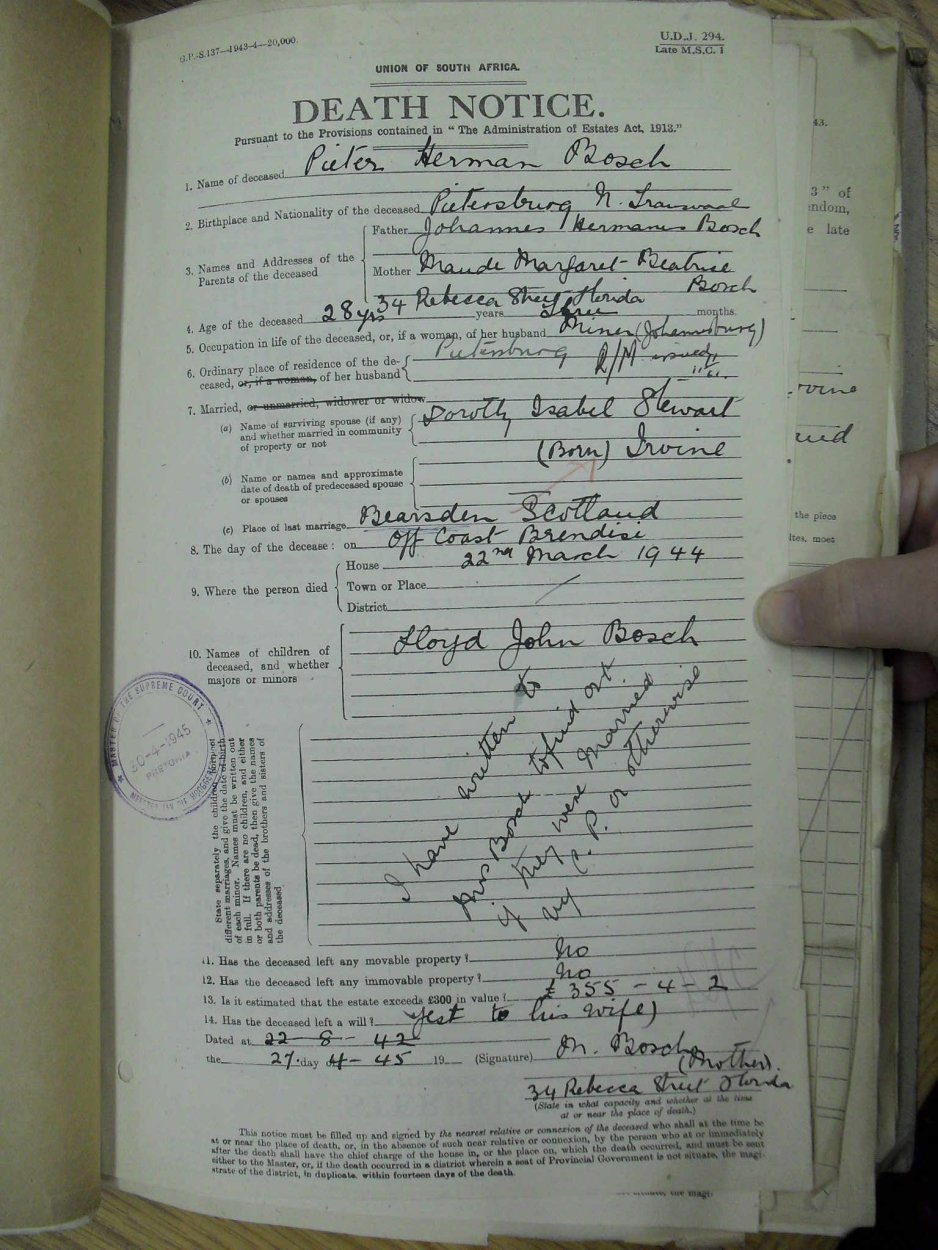 G.P.-S.137—1943-4—20,000.
U.D.J. 294.
Late M.S.C. 1
UNION OF SOUTH AFRICA.
DEATH NOTICE.
Pursuant to the Provisions contained in "The Administration of Estates Act, 1913."
1. Name of deceased Pieter Herman Bosch
2. Birthplace and Nationality of the deceased Pietersburg N. Transvaal
3. Names and Addresses of the Parents of the deceased
Father Johannes Hermanus Bosch
Mother Maude Margaret Beatrice
Bosch
34 Rebecca Street Florida
4. Age of the deceased 28 yrs years three months.
5. Occupation in life of the deceased, or, if a woman, of her husband Miner (Johannesburg)
6. Ordinary place of residence of the deceased, or, if a woman, of her husband Pietersburg
R/M issued
7. Married, or unmarried, widower or widow
(a) Name of surviving spouse (if any) and whether married in community of property or not
Dorothy Isabel Stewart
(Born) Irvine
(b) Name or names and approximate date of death of predeceased spouse or spouses
(c) Place of last marriage Bearsden Scotland
8. The day of the decease: on Off Coast Brendisi
22nd March 1944
9. Where the person died
House
Town or Place
District
10. Names of children of deceased, and whether majors or minors
Lloyd John Bosch
State separately the children born of different marriages, and give the date of birth of each minor. Names must be written out in full. If there are no children, and either or both parents be dead, then give the names and addresses of the brothers and sisters of the deceased
MASTER OF THE SUPREME COURT
30-4-1945
PRETORIA
I have written to
Mrs Bosch to find out
if they were married
by C. P. or otherwise
11. Has the deceased left any movable property? No
12. Has the deceased left any immovable property? No
13. Is it estimated that the estate exceeds £300 in value? £ 355 - 4 - 2
14. Has the deceased left a will? yes (to his wife)
Dated at 22 - 8 - 42
the 27. day of 4 - 45 19 (Signature) M. Bosch
(Mother).
34 Rebecca Street Florida
(State in what capacity and whether at the time
at or near the place of death.)
This notice must be filled up and signed by the nearest relative or connexion of the deceased who shall at the time be
at or near the place of death, or, in the absence of such near relative or connexion, by the person who at or immediately
after the death shall have the chief charge of the house in, or the place on, which the death occurred, and must be sent
either to the Master, or, if the death occurred in a district wherein a seat of Provincial Government is not situate, the magi-
strate of the district, in duplicate, within fourteen days of the death.